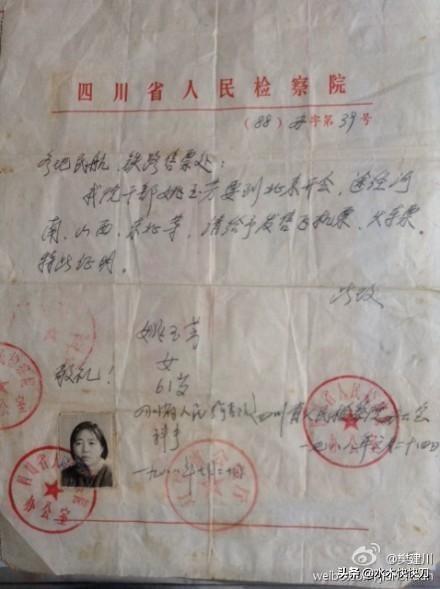 四川省人民检察院
(88) 字第39号
各地民航、铁路售票处：
我院干部姚玉芳要到北京开会，途经河
南、山西、东北等，请给予发售飞机票、火车票。
特此证明。
此致
敬礼！
姚玉芳
女
61岁
四川省人民检察院
四川省人民检察院办公室
一九八八年七月二十四日
科干
一九八八年七月二十
@樊建川
weibo.com/
头条 @水木快快刀